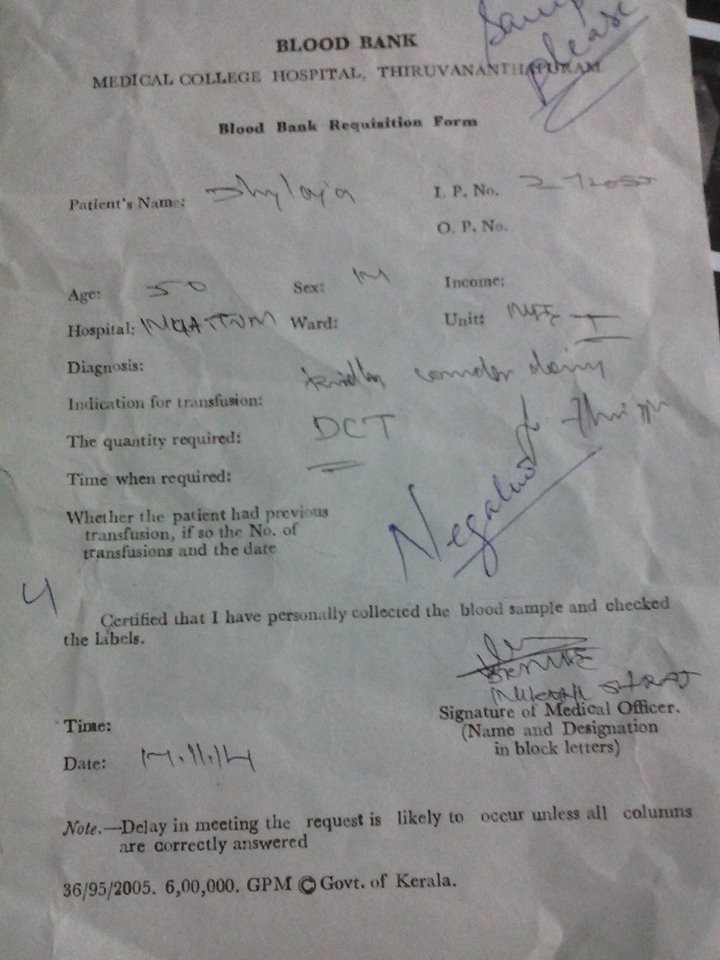 Sample
Please
BLOOD BANK
MEDICAL COLLEGE HOSPITAL, THIRUVANANTHAPURAM
Blood Bank Requisition Form
Patient's Name: Shylaja I. P. No.
O. P. No.
Age: 50 Sex: Income:
Hospital: Ward: Unit: I
Diagnosis:
Indication for transfusion:
The quantity required: DCT
Time when required:
Negative
Whether the patient had previous
transfusion, if so the No. of
transfusions and the date
Certified that I have personally collected the blood sample and checked
the labels.
Signature of Medical Officer.
(Name and Designation
in block letters)
Time:
Date: 17.11.14
Note.—Delay in meeting the request is likely to occur unless all columns
are correctly answered
36/95/2005. 6,00,000. GPM © Govt. of Kerala.